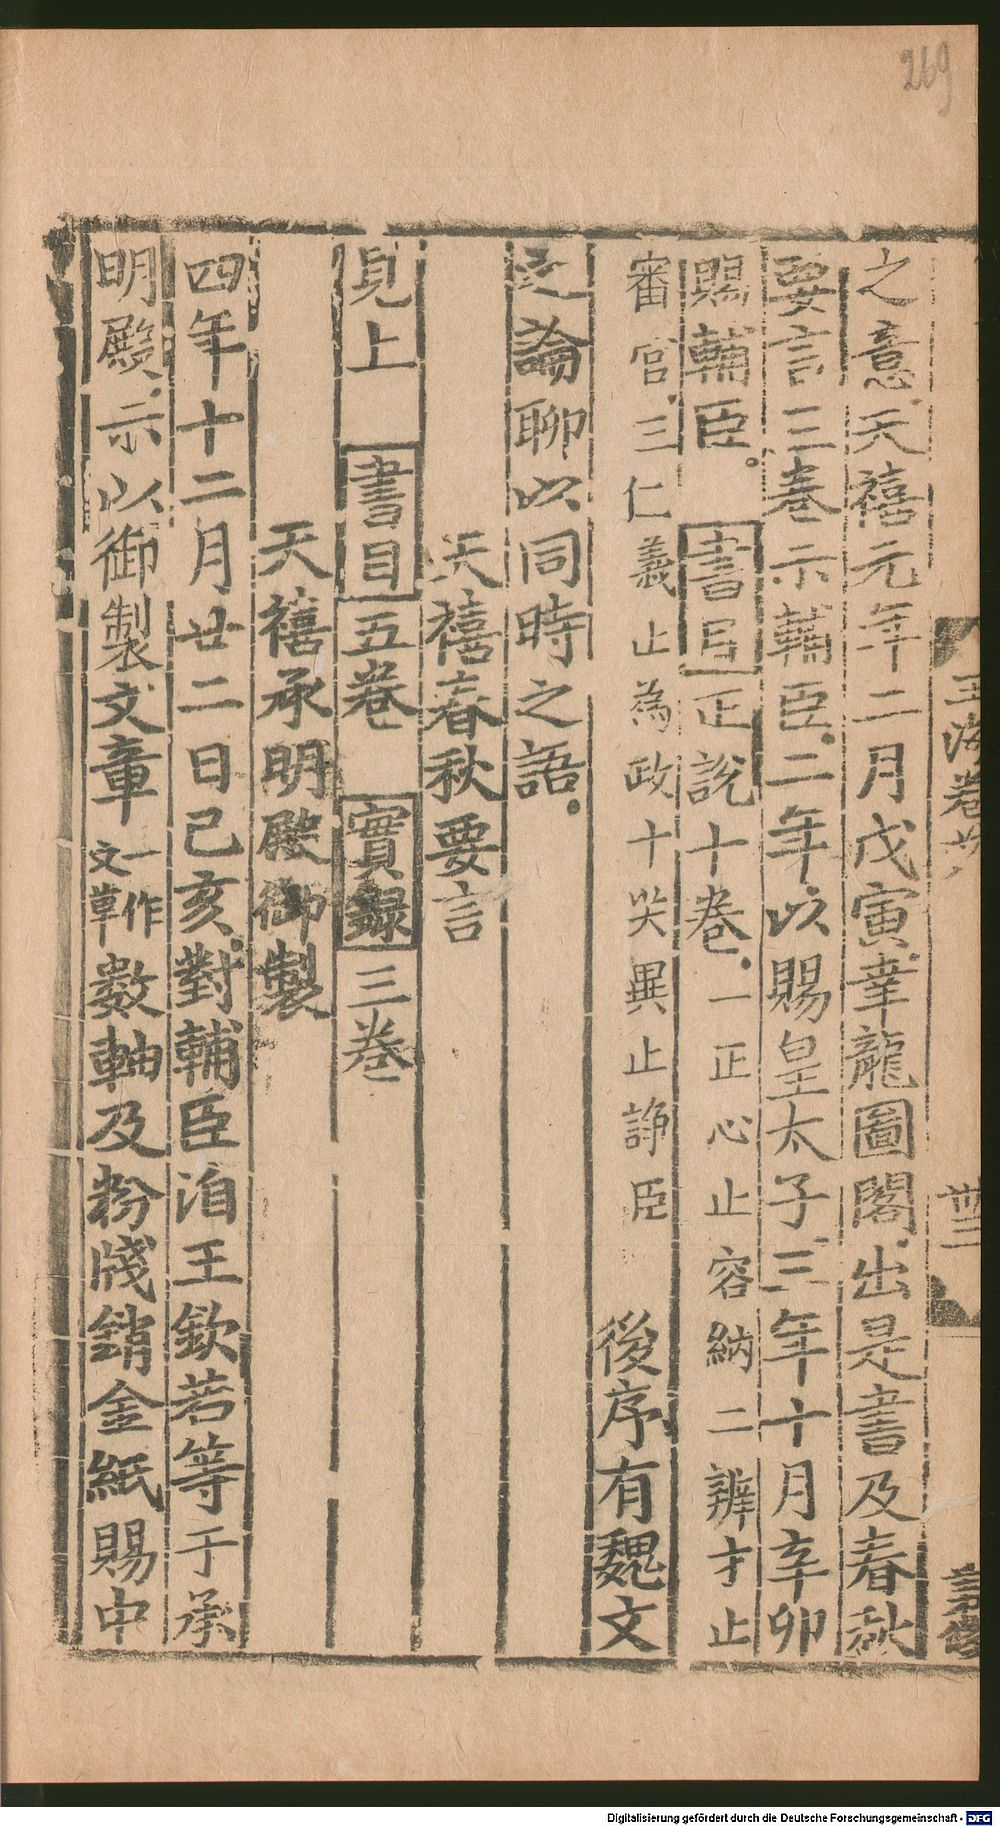 269
玉海卷廿八
卅三
之意天禧元年二月戊寅幸龍圖閣出是書及春秋
要言三卷示輔臣二年以賜皇太子三年十月辛卯
賜輔臣。書目正說十卷一正心止容納二辨才止
審官三仁義止為政十哭異止諍臣 後序有魏文
之論聊以同時之語
天禧春秋要言
見上 書目五卷 實録三卷
天禧承明殿御製
四年十二月廿二日己亥對輔臣洎王欽若等于承
明殿示以御製文章一作文草數軸及粉牋銷金紙賜中
Digitalisierung gefördert durch die Deutsche Forschungsgemeinschaft - DFG